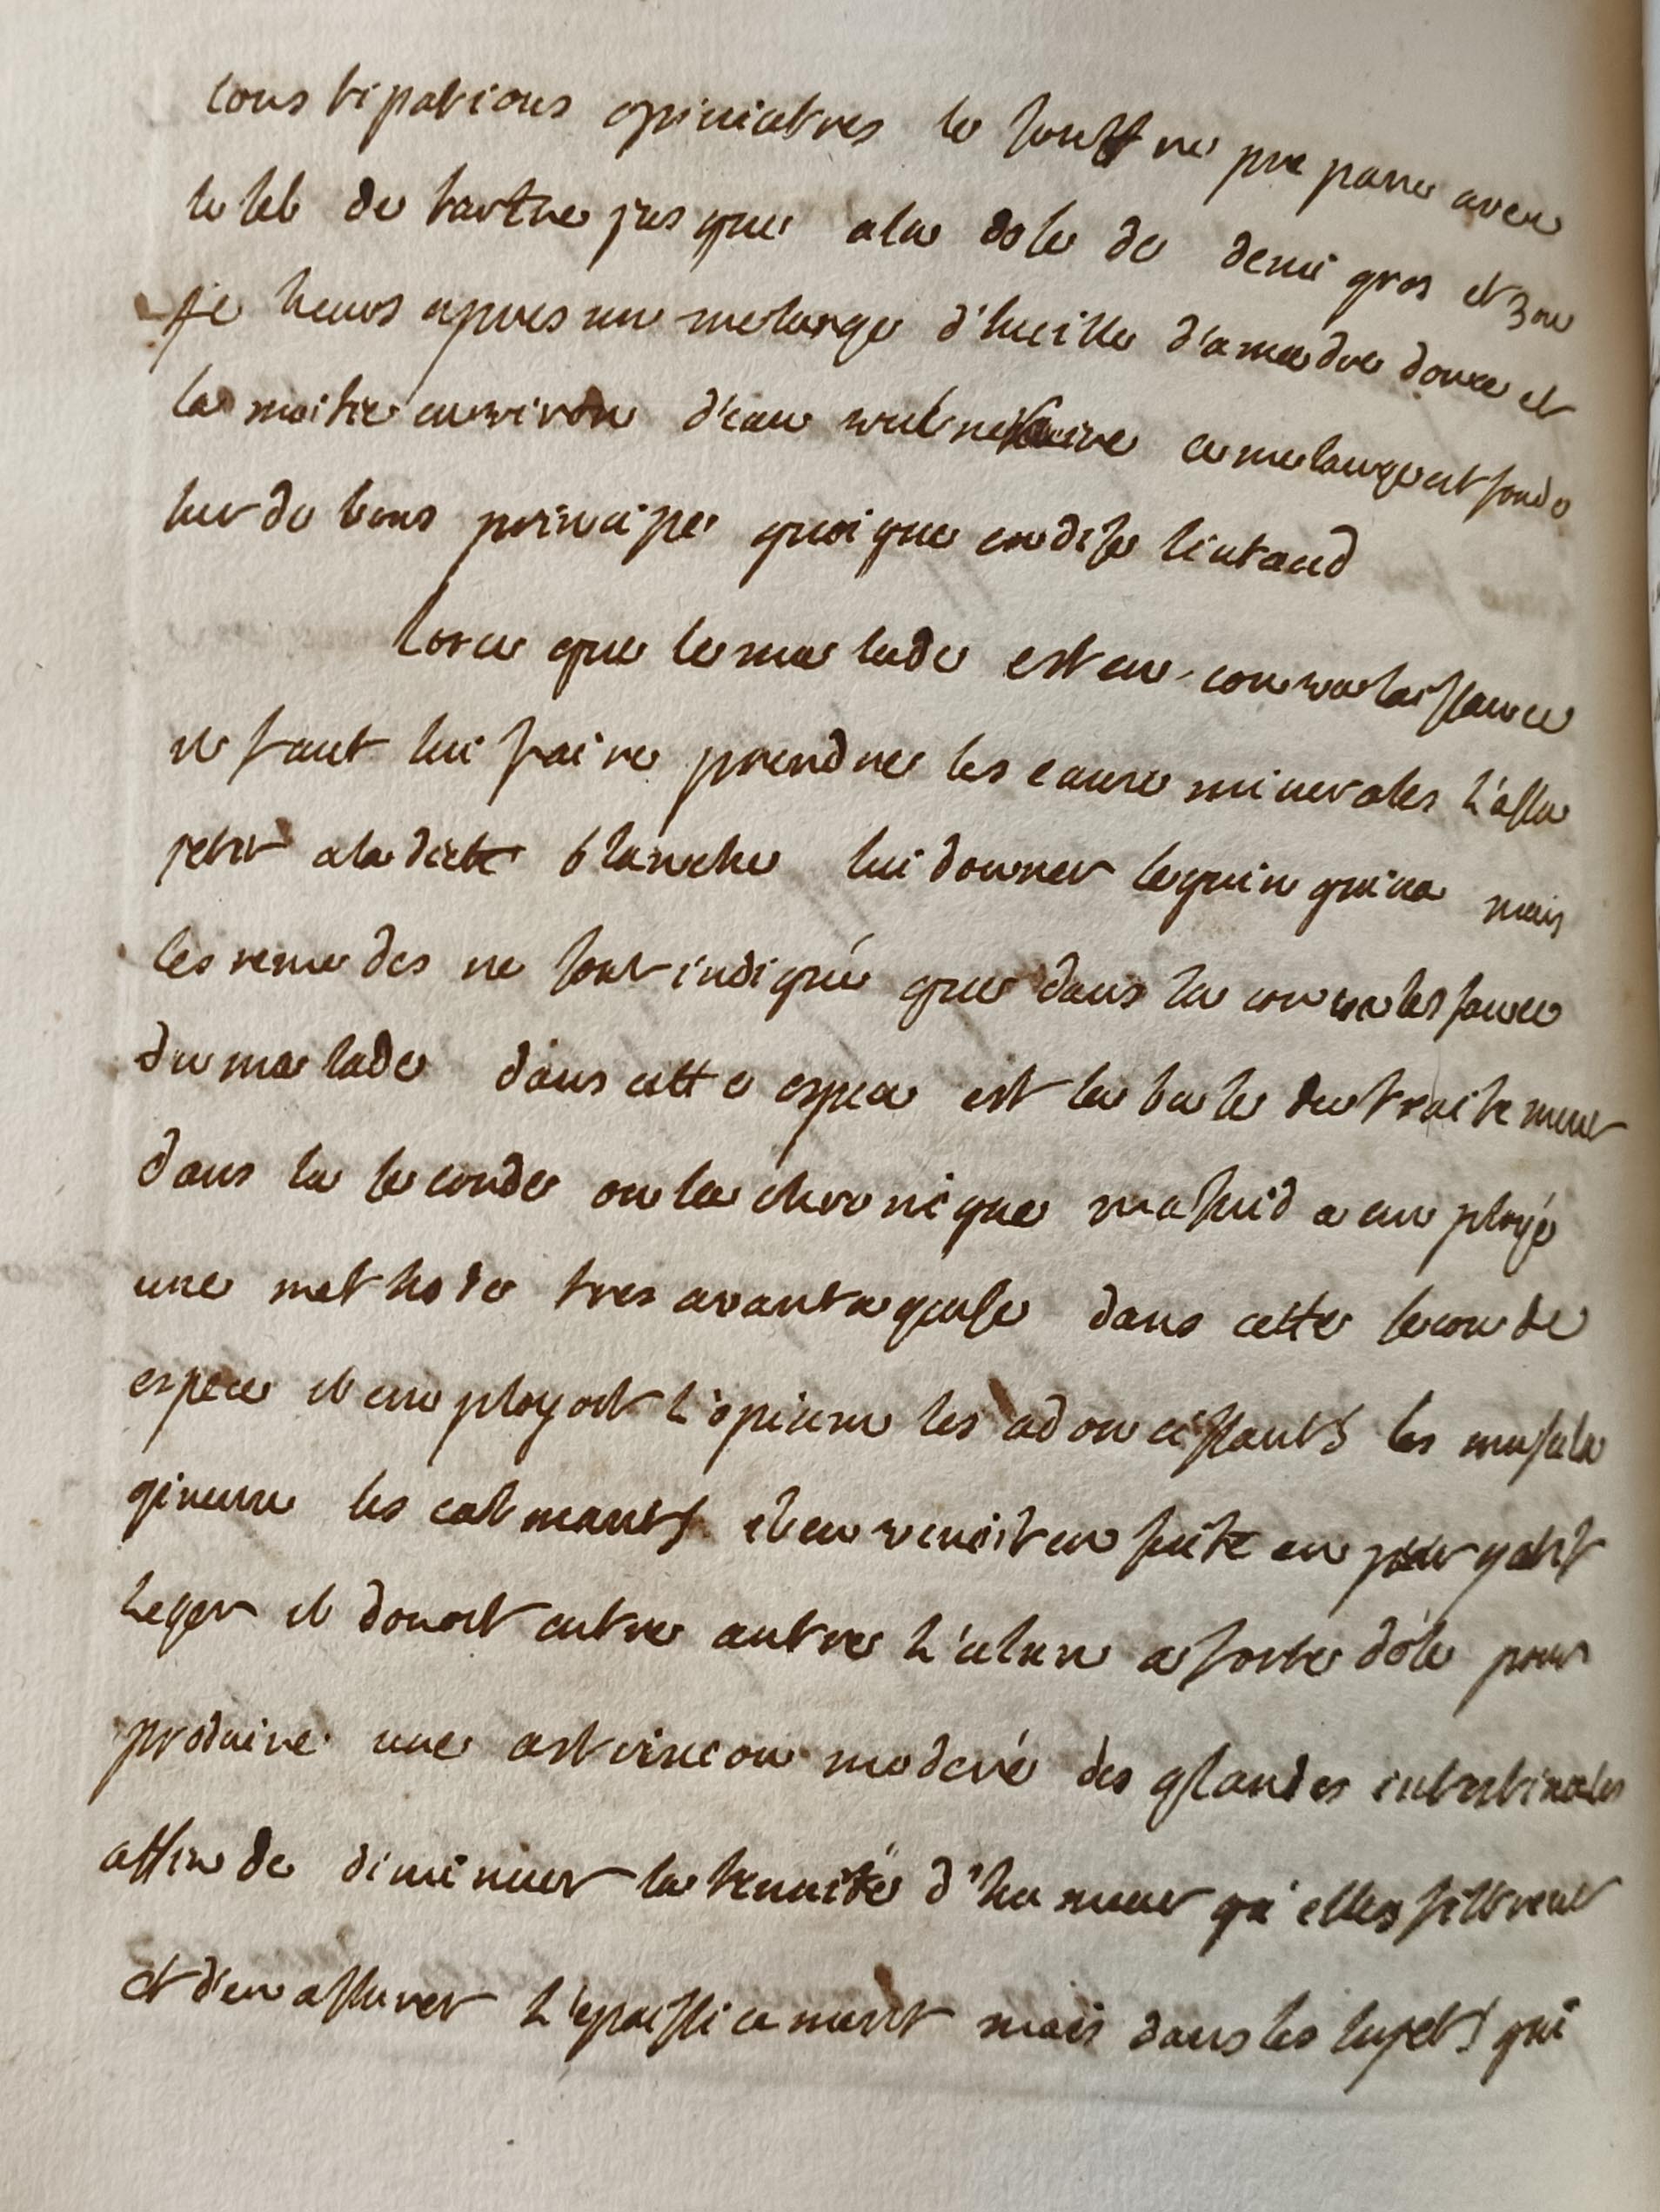 constipations opiniatres le souffre preparre avec
le sel de tartre jusque a la dose de demi gros et 3 ou
4 heurs apres un melange d'hueille d'amendre douce et
la moitie environ d'eau vulneraire ce melange est fonde
sur de bons principe quoique en dise lieutaud
lorce que le malade est en convalaissance
il faut lui faire prendre les eaux minerales l'assu
jetir a la diette blanche lui donner le quinquina mais
ces remedes ne sont indiqué que dans la convalessance
du malade dans cette espece est la base du traitement
dans la seconde ou la chronique
une methode tres avantageuse dans cette seconde
espece il employoit l'opium les adoucissants les musila
gineux les calmants il en venoit en suite en purgatif
leger il donoit entre autre l'alun a forte dose pour
produire une astriction moderé des glandes intestinales
affin de diminuer la tenuité d'humeur qu'elles filtrent
et d'en assurer l'epaissicement mais dans les sujets qui